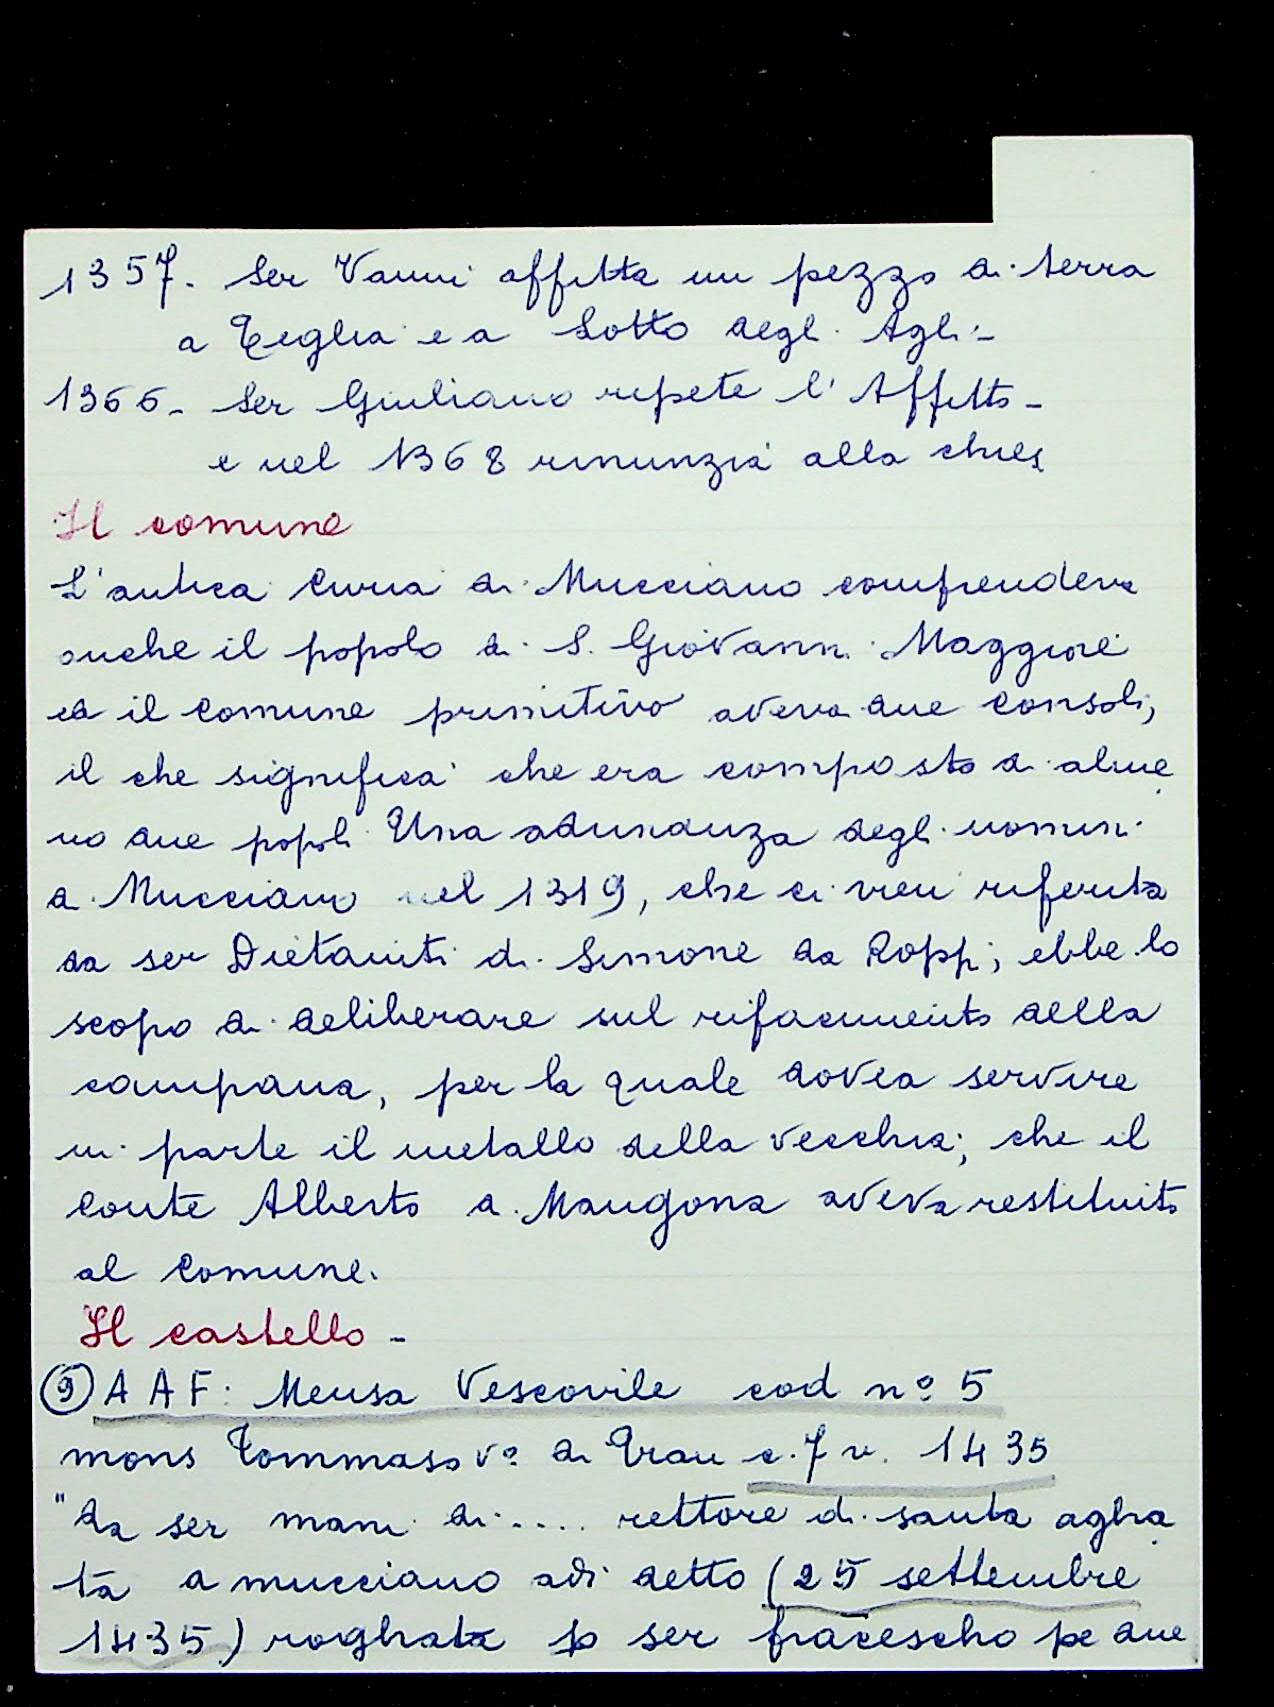 1357. Ser Vanni affitta un pezzo di terra
a Teglia e a Sotto degli Agli -
1366 - Ser Giuliano ripete l'Affitto -
e nel 1368 rinunzia alla chies
Il comune
L'antica Curia di Mucciano comprendeva
anche il popolo di S. Giovanni Maggiore
ed il comune primitivo aveva due consoli,
il che significa che era composto di alme
no due popoli. Una adunanza degli uomini
di Mucciano nel 1319, che ci vien riferita
da ser Dietaiuti di Simone da Poppi, ebbe lo
scopo di deliberare sul rifacimento della
campana, per la quale dovea servire
in parte il metallo della vecchia, che il
Conte Alberto di Mangona aveva restituito
al Comune.
Il castello -
⑨ A A F: Mensa Vescovile cod nº 5
mons Tommaso vº di Trau c. 7 v. 1435
"da ser mani di .... rettore di santa agha
ta a mucciano adi detto (25 settembre
1435) roghata p ser fracescho pe due